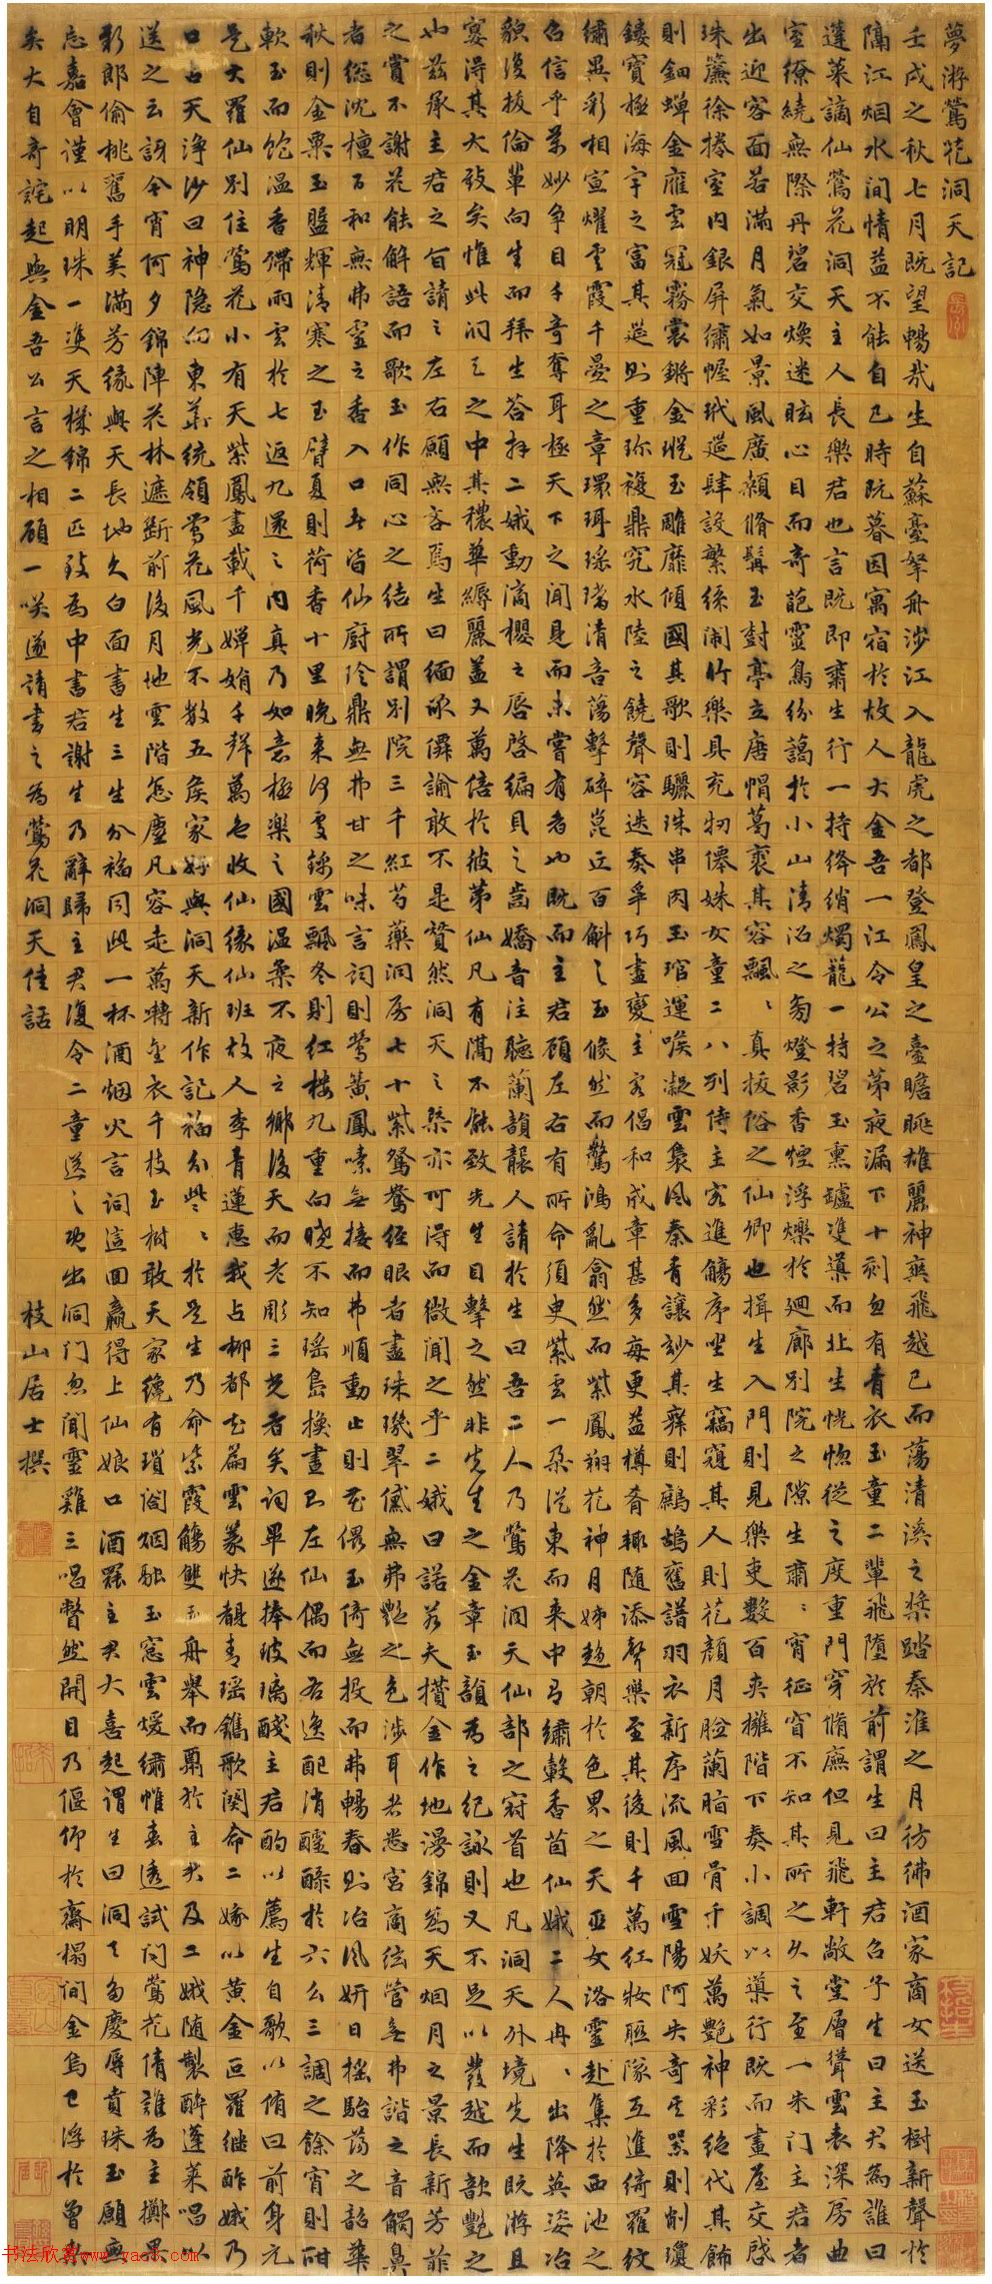 夢游鶯花洞天記
壬戌之秋七月既望暢哉生自蘇臺拏舟涉江入龍虎之都登鳳皇之臺瞻眺雄麗神爽飛越已而蕩清溪之槳踏秦淮之月彷彿酒家商女送玉樹新聲於
隔江烟水間情益不能自已時既暮因寓宿於故人大金吾一江令公之第夜漏下十刻忽有青衣玉童二輩飛墮於前謂生曰主君召予生曰主君為誰曰
蓬萊謫仙鶯花洞天主人長樂君也言既即肅生行一持絳綃燭龍一持碧玉熏罏雙導而北生恍惚從之度重門穿脩廡但見飛軒敞堂層聳雲表深房曲
室繚繞無際丹碧交煥迷眩心目而奇葩靈鳥紛藹於小山清沼之匆燈影香煙浮爍於迴廊別院之隙生肅肅宵征窅不知其所之久之至一朱门主君者
出迎容面若滿月氣如景風廣顙脩髯玉封亭立唐帽葛裘其容飄飄真拔俗之仙卿也揖生入門則見樂吏數百夾擁階下奏小調以導行既而畫屋交啓
珠簾徐捲室內銀屏繡幄玳筵肆設繁絲鬧竹樂具充牣僊姝女童二八列侍主客進觴序坐生竊寇其人則花顏月臉蘭脂雪骨千妖萬艷神彩絕代其飾
則鈿蟬金雁雲冠霧裳鏘金珽玉雕靡傾國其歌則驪珠串肉玉琯運喉凝雲裊風秦青讓妙其舞則鷓鴣舊譜羽衣新序流風回雪陽阿失奇其器則削瓊
鏤寶極海宇之富其筵則重珎複鼎窮水陸之饒聲容迭奏爭巧盡變主客倡和成章甚多每更益樽肴輒随添聲樂至其後則千萬红妝聯隊互進綺羅紋
繡異彩相宣燿雲霞千疊之章環珥瑤璫清音蕩擊碎崑丘百斛之玉倏然而驚鴻亂翕然而紫鳳翔花神月姊趨朝於色界之天巫女洛靈赴集於西池之
召信乎萬妙争目千奇奪耳極天下之聞見而未嘗有者也既而主君顧左右有所命須臾紫雲一朶從東而來中乃繡轂香茵仙娥二人冉冉出降英姿冶
貌復拔倫軰向生而拜生荅拜二娥動滴櫻之唇啓編貝之齒嬌音注聽蘭韻襲人請於生曰吾二人乃鶯花洞天仙部之冠首也凡洞天外境先生既游且
宴得其大致矣惟此洞天之中其穠華縟麗益又萬倍於彼第仙凡有隔不能致先生目擊之然非先生之金章玉韻為之紀詠則又不足以發越而歆艷之
也茲承主君之旨請之左右願無吝焉生曰緬承僊諭敢不是贊然洞天之槩亦可得而微聞之乎二娥曰諾若夫攢金作地漫錦為天烟月之景長新芳菲
之賞不謝花能解語而歌玉作同心之结所謂別院三千紅芍藥洞房七十紫鴛鴦经眼者盡珠璣翠黛無弗艷之色涉耳者悉宮商弦管無弗諧之音觸鼻
者總沈檀百和無弗靈之香入口者皆仙廚珍鼎無弗甘之味言词則鶯黃鳳嗉無接而弗順動止則花偎玉倚無投而弗暢春則冶風妍日搖駘蕩之韶華
秋則金粟玉盤輝清寒之玉臂夏則荷香十里晚来得雯綵雲飄冬則红樓九重向曉不知瑶島換晝而左仙偶而右逸配消醽醁於六么三調之餘宵則酣
軟玉而飽溫香殢雨雲於七返九還之內真乃如意極樂之國温柔不夜之鄉後天而老彫三光者矣词畢遂捧玻璃醆主君酌以薦生自歌以侑曰前身元
是大羅仙別住鶯花小有天紫鳳晝載千嬋娟千群萬色收仙緣仙班故人李青蓮惠我占柳都花篇雲篆快覩青瑶鐫歌闋命二嫁以黃金叵羅继酢娥乃
口占天浄沙曰神隐向東華統領鶯花風光不教五侯家好與洞天新作記福分些些於是生乃命紫霞觴雙玉舟舉而酬於主君及二娥随製醉蓬萊唱以
送之云訝今宵何夕錦陣花林遮斷前後月地雲階怎塵凡容走萬轉金衣千枝玉樹敢天家纔有瑣闼烟融玉窓雲煖繡帷春透試问鶯花倩誰為主擲果
彩郎偷桃舊手美滿芳緣與天長地久白面書生三生分福同此一杯酒烟火言詞這回贏得上仙娘口酒罷主君大喜起謂生曰洞天多慶辱賁珠玉願無
忘嘉會谨以明珠一雙天機錦二匹致為中書君謝生乃辭歸主君復令二童送之既出洞门忽聞靈雞三唱瞥然開目乃偃仰於齋榻间金烏已浮於曾
矣大自奇詫起與金吾公言之相顧一咲遂請書之為鶯花洞天佳話
枝山居士撰
书法欣赏www.yac8.com